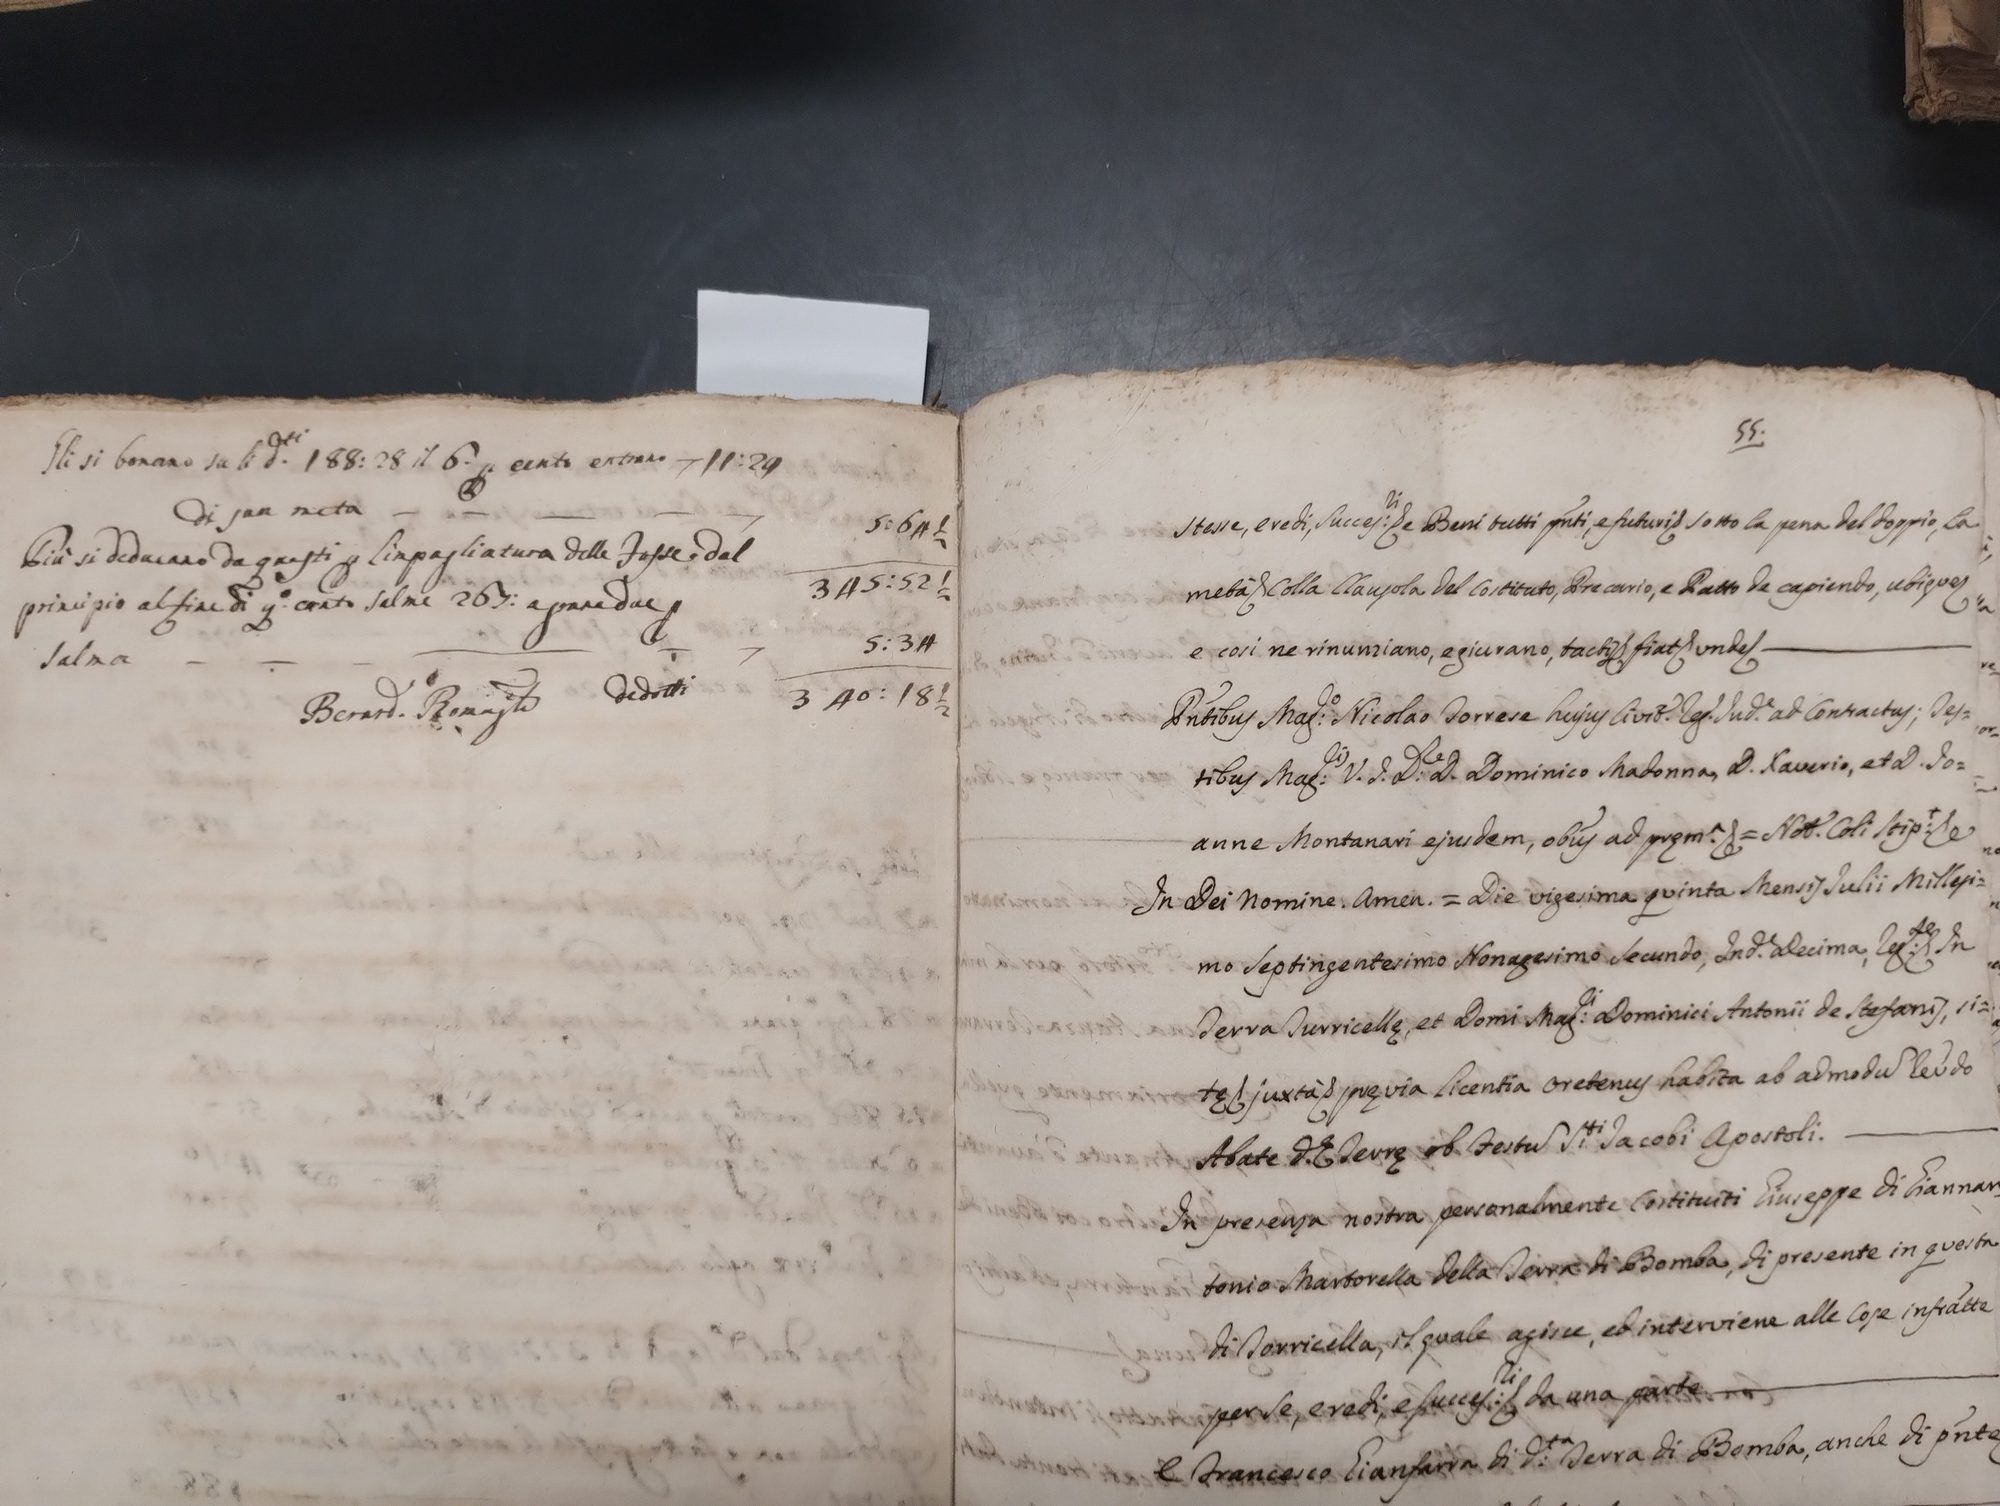 Gli si bonano su li d.ti 188:28 il 6. p cento entrano 11:29
di sua meta 5:64 1/2
Più si deducano da questi p l'inpagliatura delle Fosse dal
345:52 1/2
principio al fine di q.o cento salme 267: a grana due p
salma 5:34
Berard.o Romag dedotti 340:18 1/2
55.
stesse, eredi, succes:ri &e Beni tutti pnti, e futuri& sotto la pena del doppio, la
metà& Colla Clausola del Costituto, Precario, e Patto de capiendo, ubique&
e così ne rinunziano, e giurano, tactis& fiat& unde&
Pntibus Mag:co Nicolao Torrese hujus Civit.s Reg. Jud.e ad Contractus; Tes=
tibus Mag:cis V. J. D:re D. Dominico Madonna, D. Xaverio, et D. Jo=
anne Montanari ejusdem, obus ad pręm.a & = Not.r Coli Stip:t &e
In Dei Nomine. Amen. = Die vigesima quinta Mensis Julii Millesi=
mo Septingentesimo Nonagesimo Secundo, Ind.e Decima, Reg:te & In
Terra Turricellę, et Domi Mag:ci Dominici Antonii de Stefanis, si=
tę& juxtà& pręvia licentia oretenus habita ab admodu Revdo
Abate d.ę Terrę ob Festu S.ti Jacobi Apostoli.
In presenza nostra personalmente Costituiti Giuseppe di Giannan
tonio Martorella della Terra di Bomba, di presente in questa
di Torricella, il quale agisce, ed interviene alle cose infratte
per se, eredi, e succes:ri & da una parte
E Francesco Gianfarra di d:ta Terra di Bomba, anche di pnte